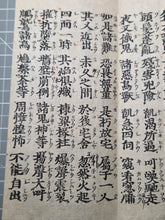 頭髮蓬亂 殘害兇險 飢渴所逼 叫喚馳走
夜叉餓鬼 諸惡鳥獸 飢急四向 窺看窓牖
如是諸難 恐畏無量 是朽故宅 屬于一人
其人近出 未久之間 於後宅舍 忽然火起
四面一時 其焰俱熾 棟梁椽柱 爆聲震裂
摧折墮落 牆壁崩倒 諸鬼神等 揚聲大叫
鵰鷲諸鳥 鳩槃荼等 周慞惶怖 不能自出